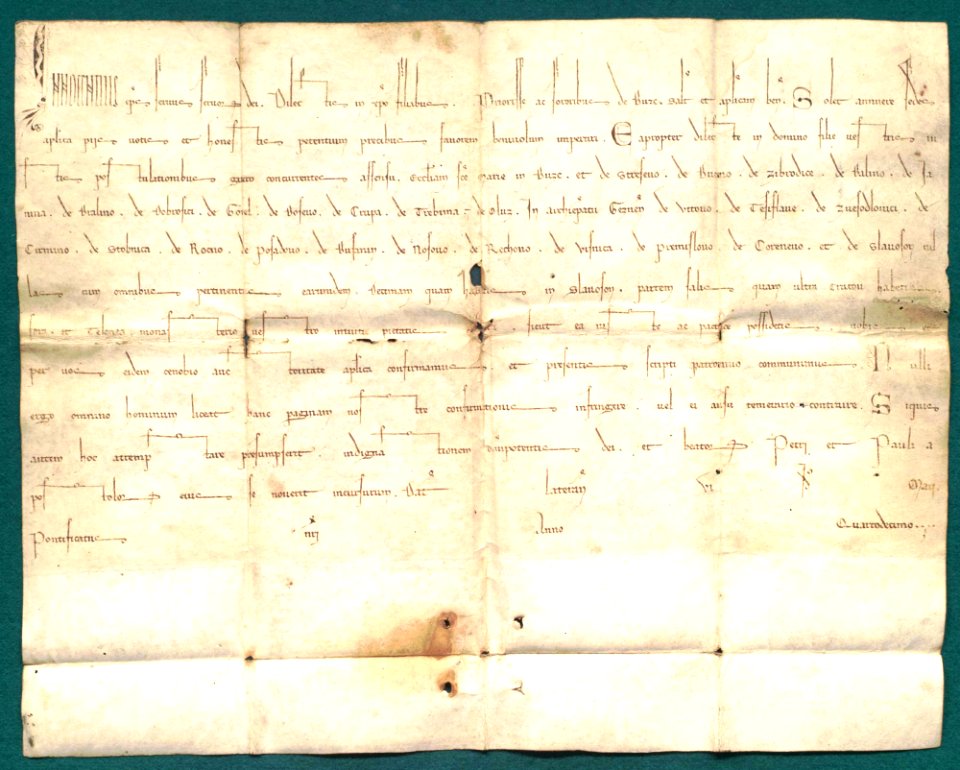 INNOCENTIUS ep̄s servus servoꝝ dei. Dilectis in xp̄o filiabus. Magistre ac sororibus de Buzc. salt̄ et ap̄licam ben̄. Solet annuere sedes
ap̄lica piis votis et honestis petentium precibus favorem benivolum impertiri. Eapropter dilecte in domino filie vestris
iustis postulationibus grato concurrentes assensu. Eccl̄iam sc̄e Marie in Buzc. et de Streseuo. de Buono. de Zibrodice. de Balino. de
de Bralino. de Bobrosici. de Gorel. de Boseuo. de Crupa. de Trebima. de Oluz. In de Vitouo. de Cesislaue. de Zuesodlouici. de
Cirmino. de Stobnica. de Rocno. de Posaduo. de Businin. de Nosouo. de Recheno. de Visnica. de Premislouo. de Coreneuo. et de Slauosou
cum omnibus pertinentiis earumdem. Decimam quam habetis in Slauosou. partem salis quam ultra Cracou habetis
et monasterio vestro intuitu pietatis sicut ea iuste ac pacifice possidetis vobis et
per vos eidem cenobio auctoritate ap̄lica confirmamus. et presentis scripti patrocinio communimus. Nulli
ergo omnino hominum liceat hanc paginam nostre confirmationis infringere. vel ei ausu temerario contraire. Siquis
autem hoc attemptare presumpserit. indignationem om̄ipotentis dei. et beatoꝝ Petri et Pauli a
postoloꝝ eius se noverit incursurum. Dat̄ Lateran̄ vi Maii.
Pontificatus nr̄i Anno Quartodecimo...